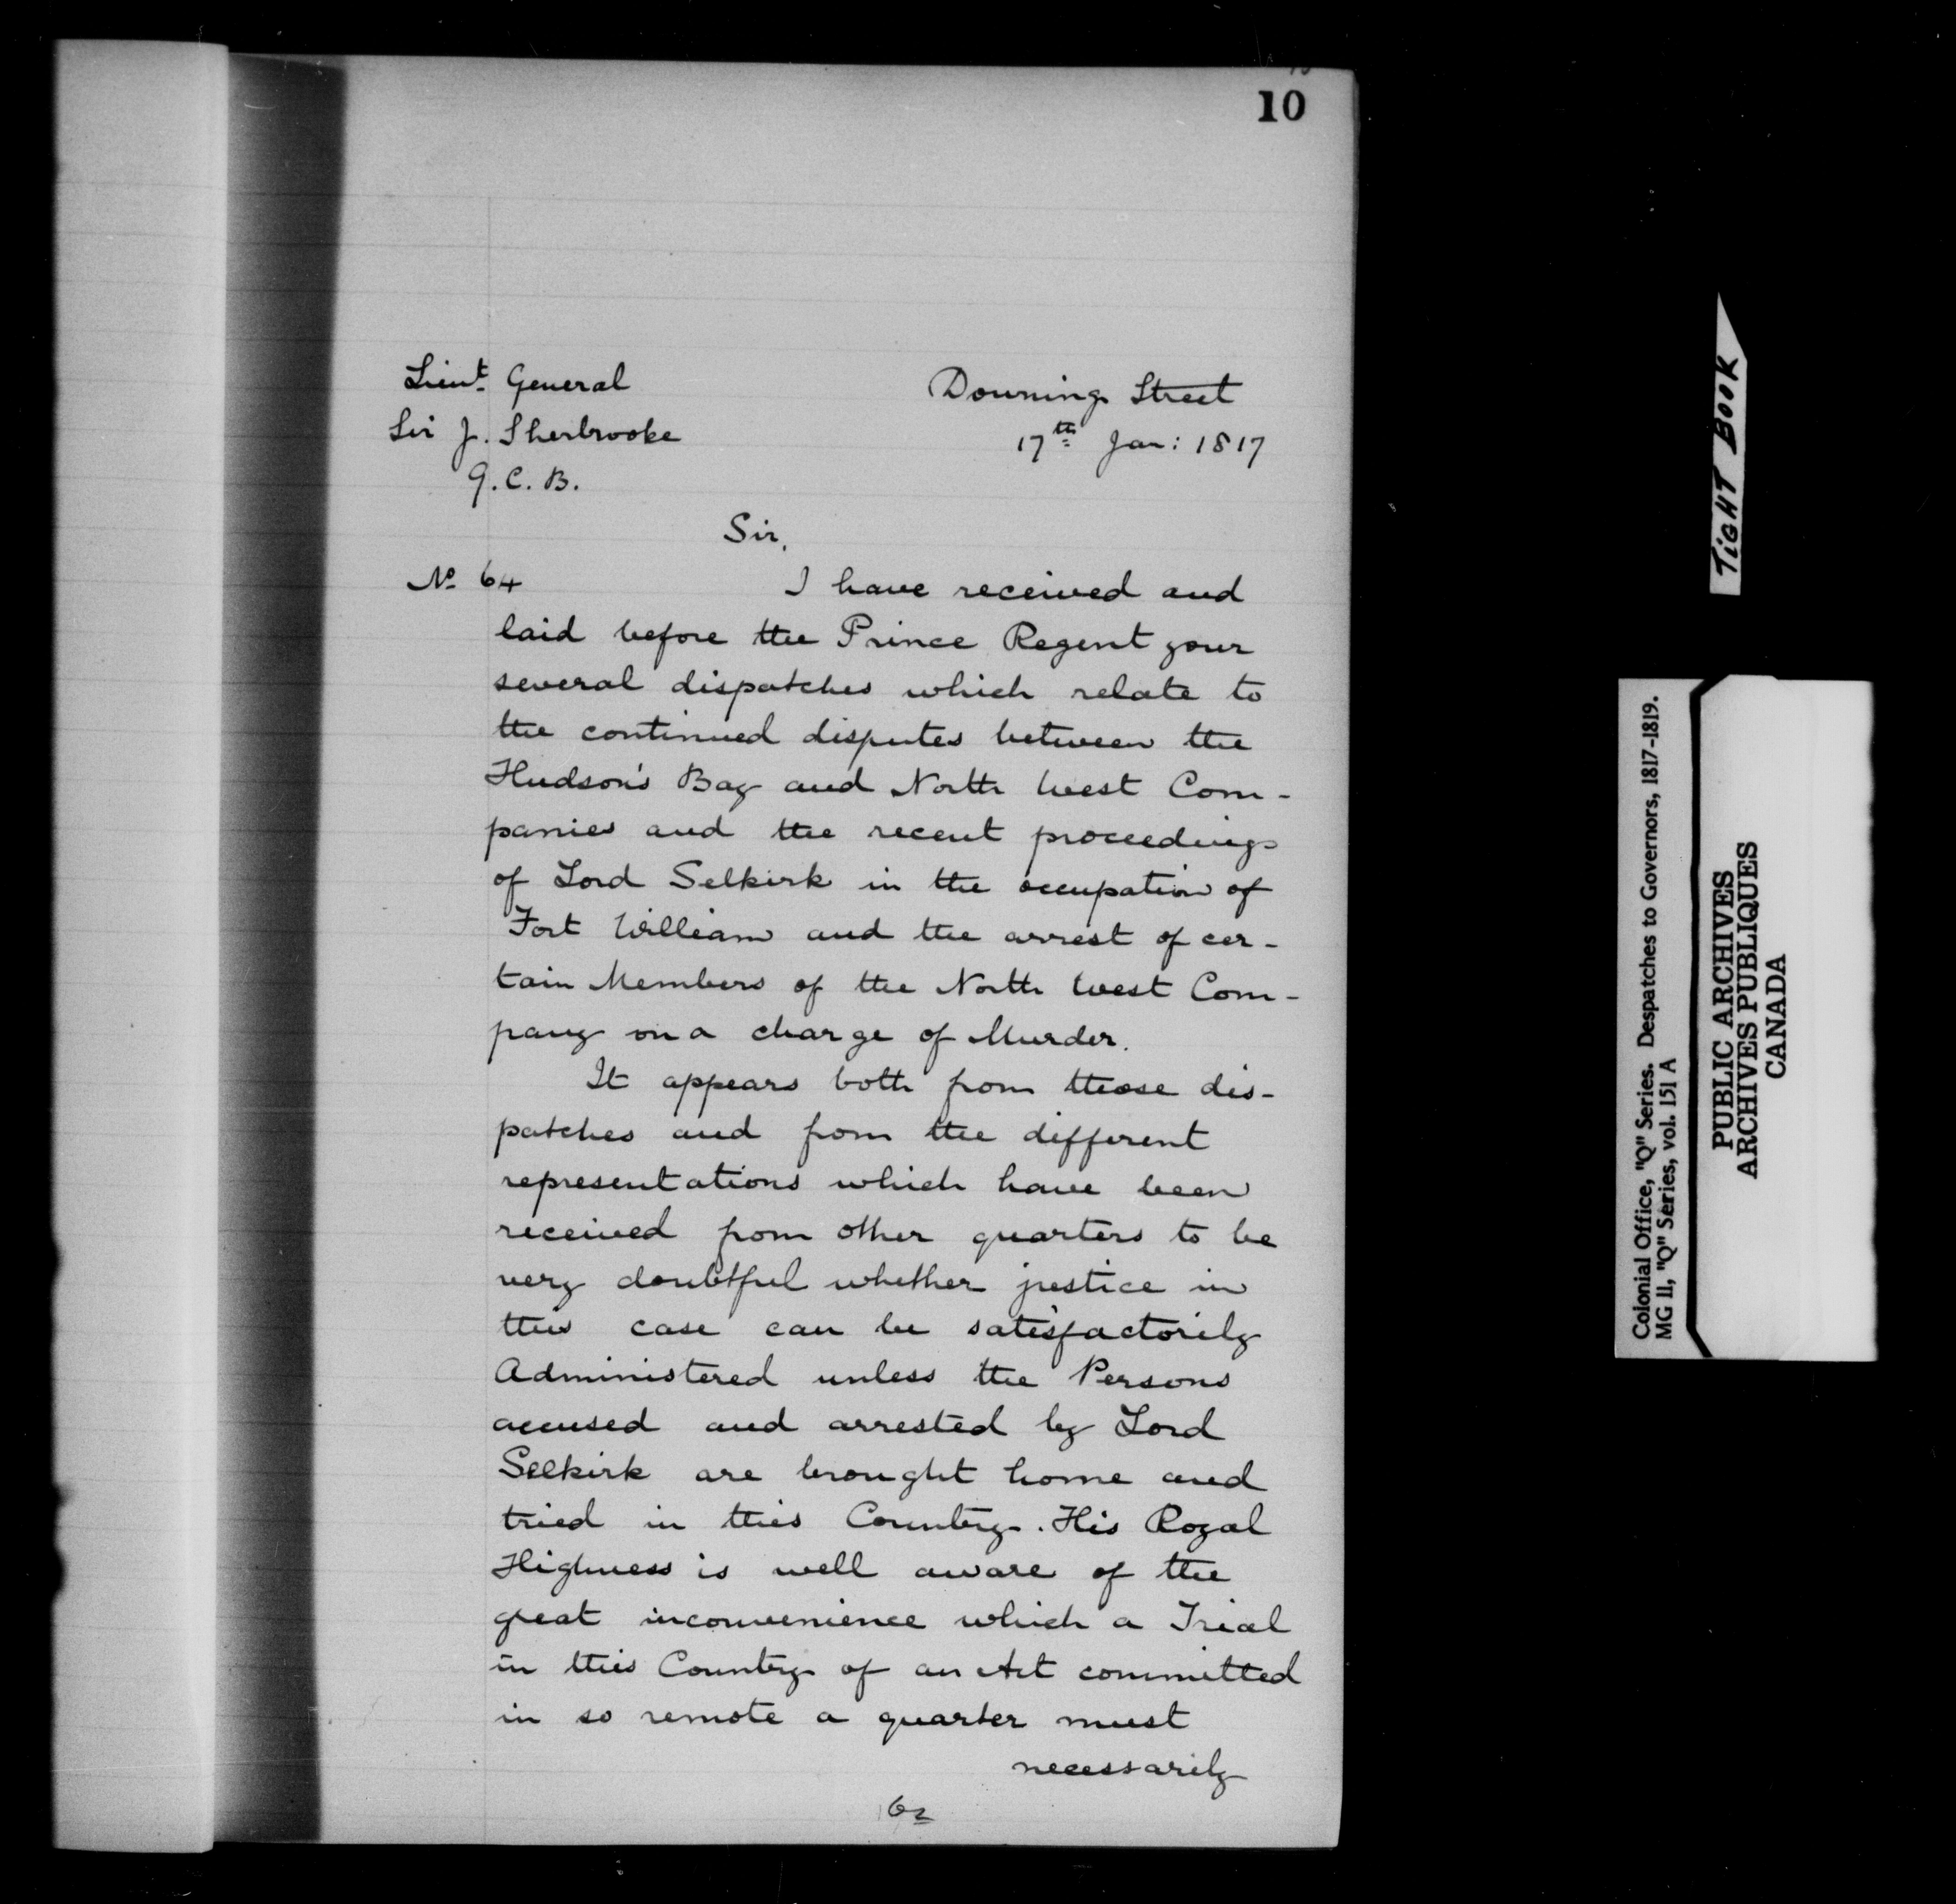 10
Lieut. General
Sir J. Sherbrooke
G.C.B.
Downing Street
17th Jan: 1817
Sir,
No 64
I have received and
laid before the Prince Regent your
several dispatches which relate to
the continued disputes between the
Hudson's Bay and North West Com-
panies and the recent proceedings
of Lord Selkirk in the occupation of
Fort William and the arrest of cer-
tain Members of the North West Com-
pany on a charge of Murder.
It appears both from those dis-
patches and from the different
representations which have been
received from other quarters to be
very doubtful whether justice in
this case can be satisfactorily
Administered unless the Persons
accused and arrested by Lord
Selkirk are brought home and
tried in this Country. His Royal
Highness is well aware of the
great inconvenience which a Trial
in this Country of an Act committed
in so remote a quarter must
necessarily
TIGHT BOOK
Colonial Office, "Q" Series. Despatches to Governors, 1817-1819.
MG 11, "Q" Series, vol. 151 A
PUBLIC ARCHIVES
ARCHIVES PUBLIQUES
CANADA